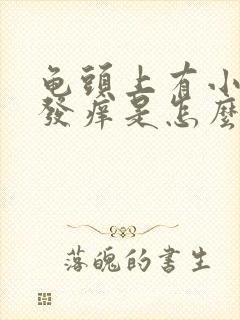 龟頭上有小
發痒是怎麼
落魄的書生